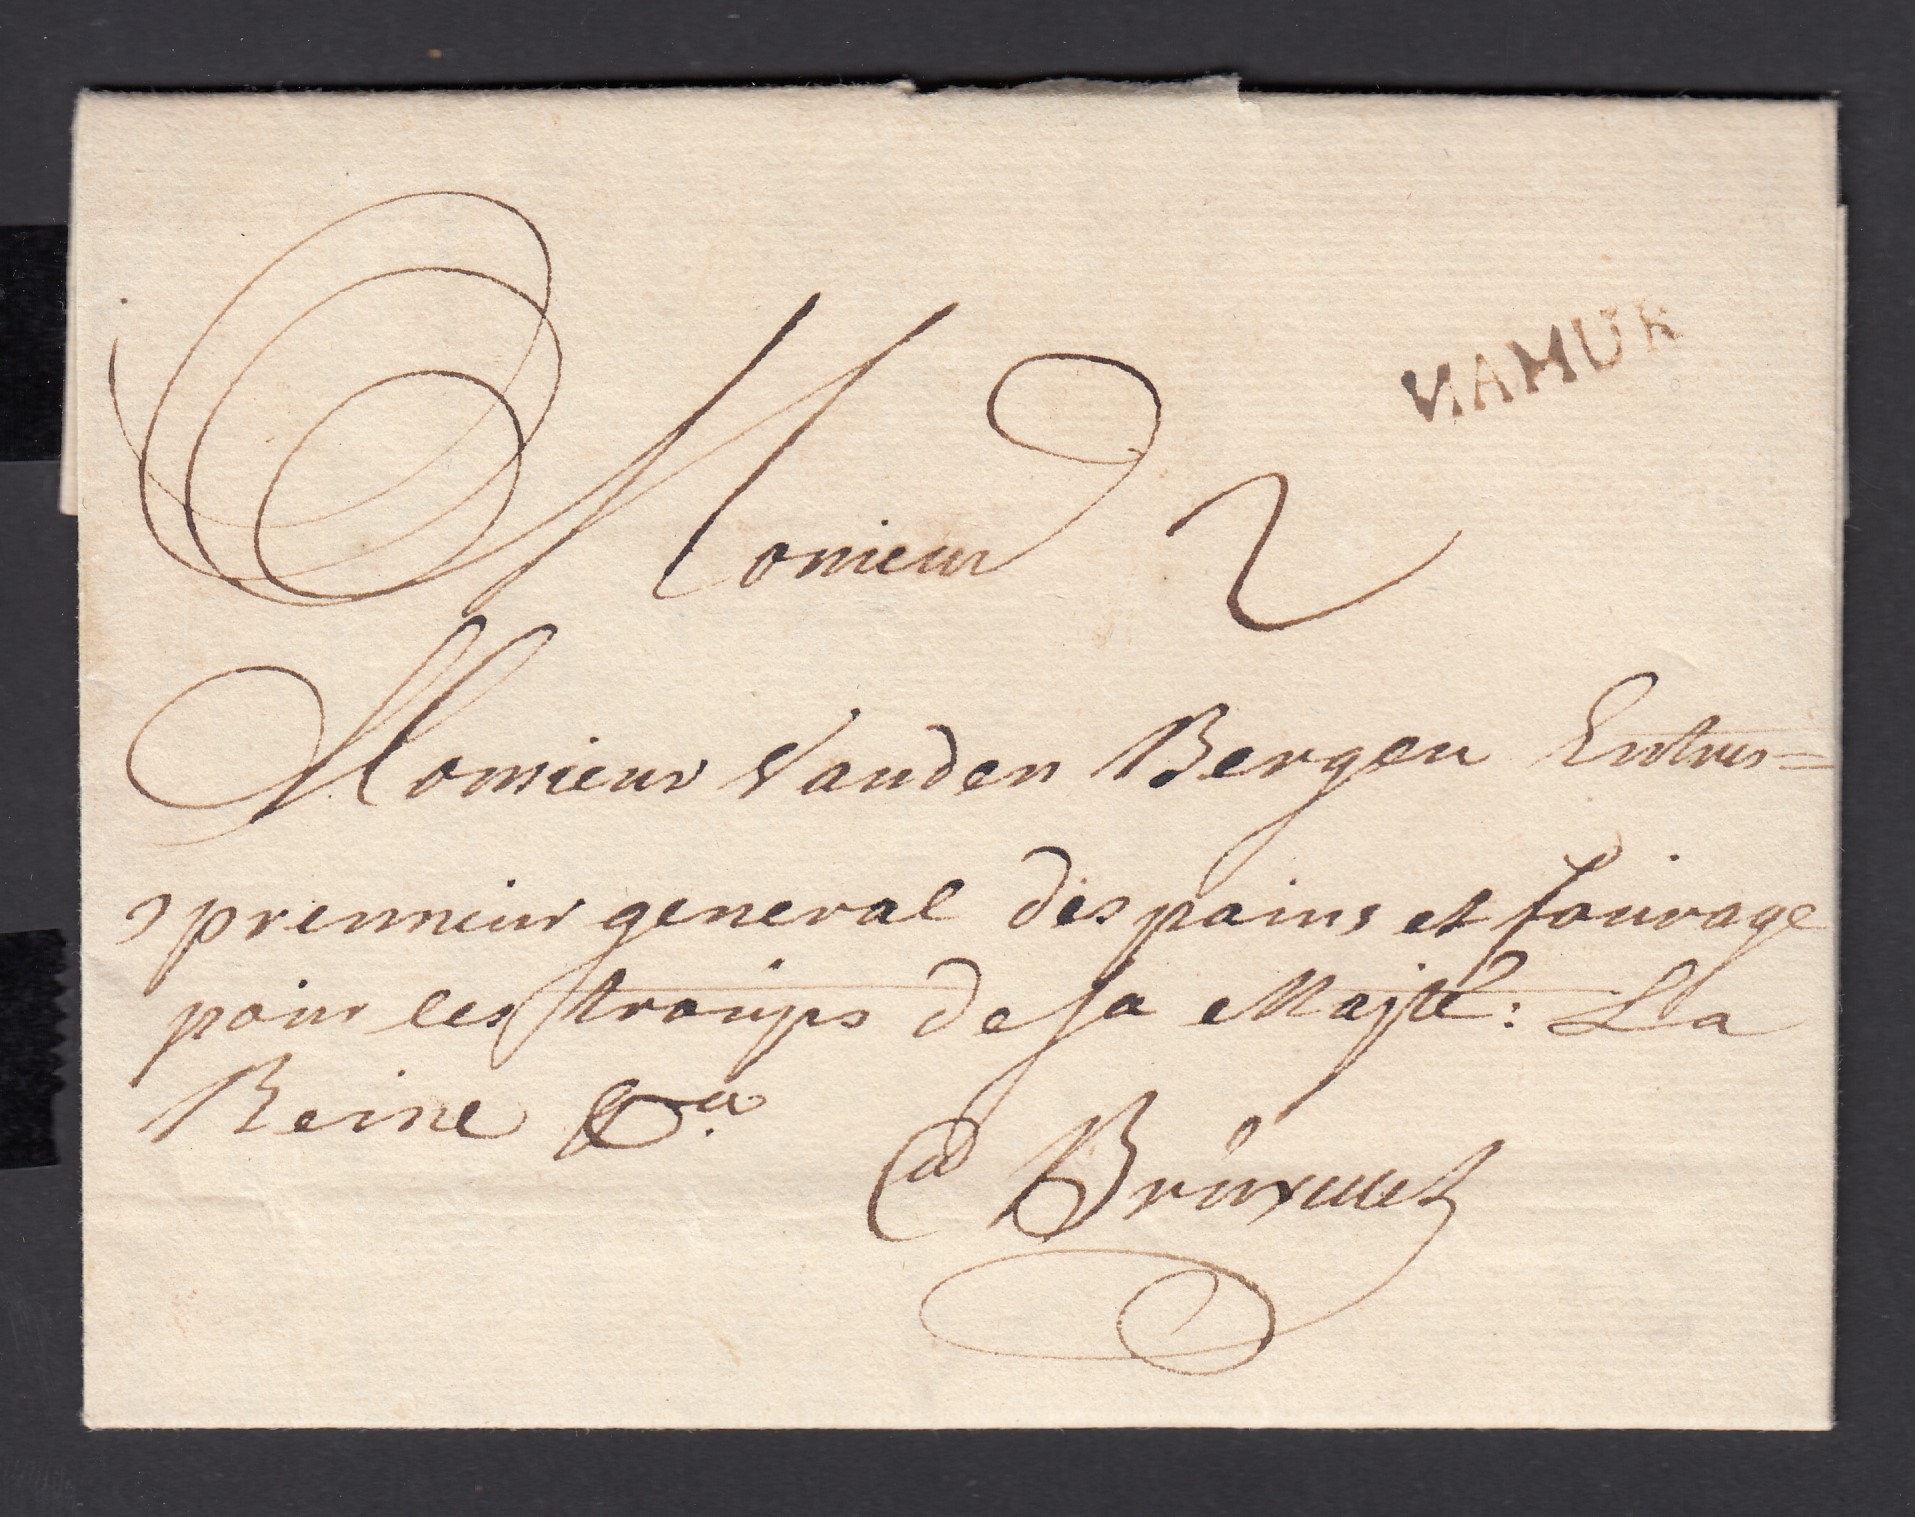 NAMUR
Monieur 2
Monsieur Vanden Bergen Entre=
=prenneur general des pains et fourage
pour les troups de sa Majte: La
Reine &a.
a Bruxelles